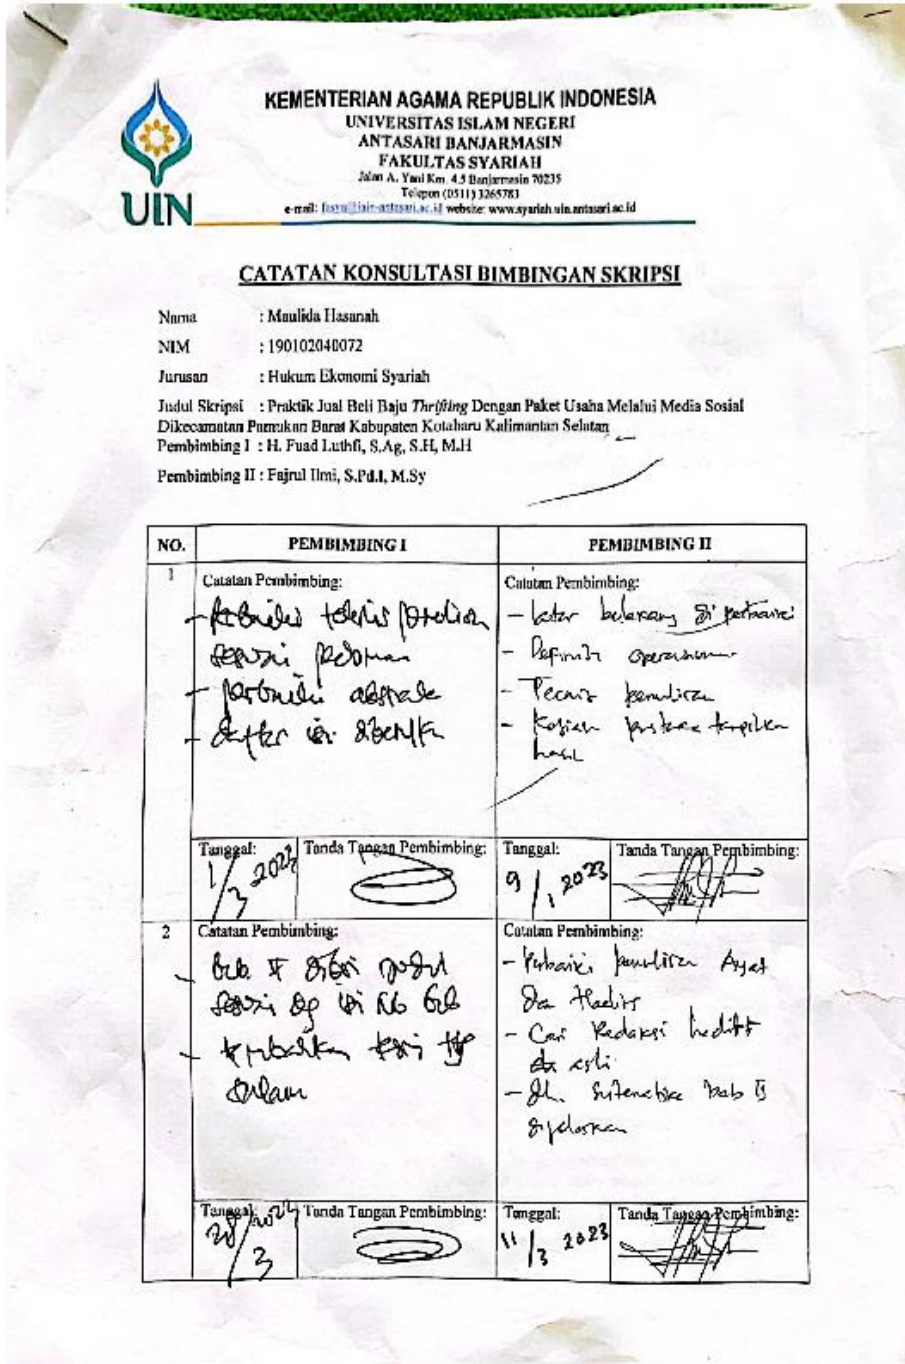 KEMENTERIAN AGAMA REPUBLIK INDONESIA
UNIVERSITAS ISLAM NEGERI
ANTASARI BANJARMASIN
FAKULTAS SYARIAH
Jalan A. Yani Km. 4.5 Banjarmasin 70235
Telepon (0511) 3265783
e-mail: fasya@iain-antasari.ac.id website: www.syariah.uin.antasari.ac.id
UIN
CATATAN KONSULTASI BIMBINGAN SKRIPSI
Nama : Maulida Hasanah
NIM : 190102040072
Jurusan : Hukum Ekonomi Syariah
Judul Skripsi : Praktik Jual Beli Baju Thrifting Dengan Paket Usaha Melalui Media Sosial
Dikecamatan Pamukan Barat Kabupaten Kotabaru Kalimantan Selatan
Pembimbing I : H. Fuad Luthfi, S.Ag, S.H, M.H
Pembimbing II : Fajrul Ilmi, S.Pd.I, M.Sy
NO. PEMBIMBING I PEMBIMBING II
1
Catatan Pembimbing:
- perbaiki teknis
sesuai pedoman
- perbaiki abstrak
- daftar isi
Catatan Pembimbing:
- Latar belakang di perbaiki
- Definisi operasional
- Tecnis penulisan
- Kajian pustaka tampilkan
hasil
Tanggal:
1/3 2023
Tanda Tangan Pembimbing:
Tanggal:
9/1 2023
Tanda Tangan Pembimbing:
2
Catatan Pembimbing:
- Bab diberi judul
sesuai dg isi bab
-
dalam
Catatan Pembimbing:
- Perbaiki penulisan Ayat
dan Hadits
- Cari Redaksi hadits
asli
- sitematika bab II
dijelaskan
Tanggal:
Tanda Tangan Pembimbing:
Tanggal:
11/3 2023
Tanda Tangan Pembimbing: